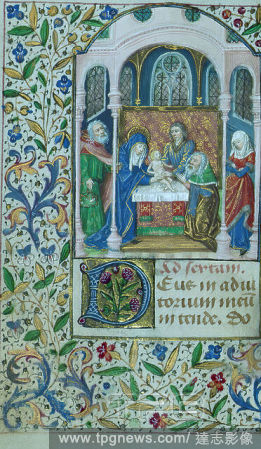 Ad sextam.
Deus in adiu
torium meu
intende. Do
www.tpgnews.com/ 達志影像